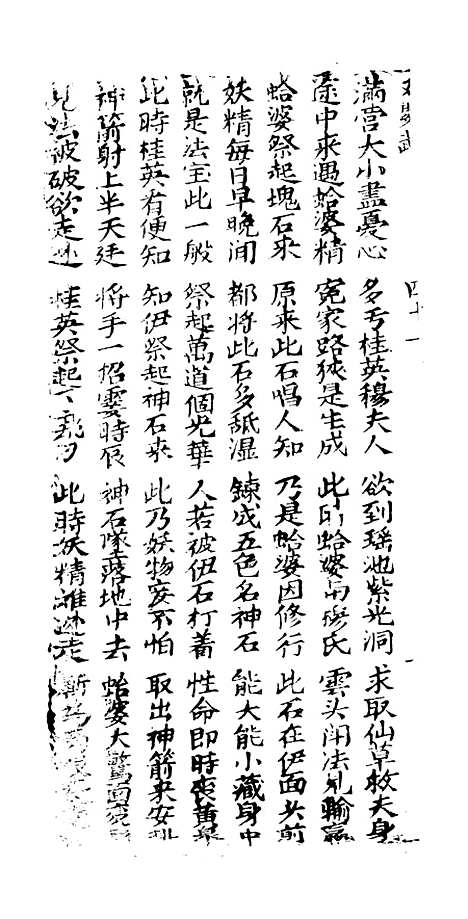 四十一
滿營大小盡憂心 多亏桂英穆夫人 欲到瑶池紫光洞 求取仙草救夫身
途中来遇蛤婆精 冤家路狹是生成 此时蛤婆与穆氏 雲头鬥法見輸贏
蛤婆祭起塊石来 原来此石唱人知 乃是蛤婆因修行 此石在伊面头前
妖精每日早晚间 都将此石多舐湿 鍊成五色名神石 能大能小藏身中
就是法宝此一般 祭起萬道個光華 人若被伊石打着 性命即時喪黄泉
此時桂英有便知 知伊祭起神石来 此乃妖物妾不怕 取出神箭来安
神箭射上半天廷 将手一招霎時辰 神石墜落地中去 蛤婆大驚面
見法被破欲走 桂英祭起 刀 此時妖精難逃走 斬